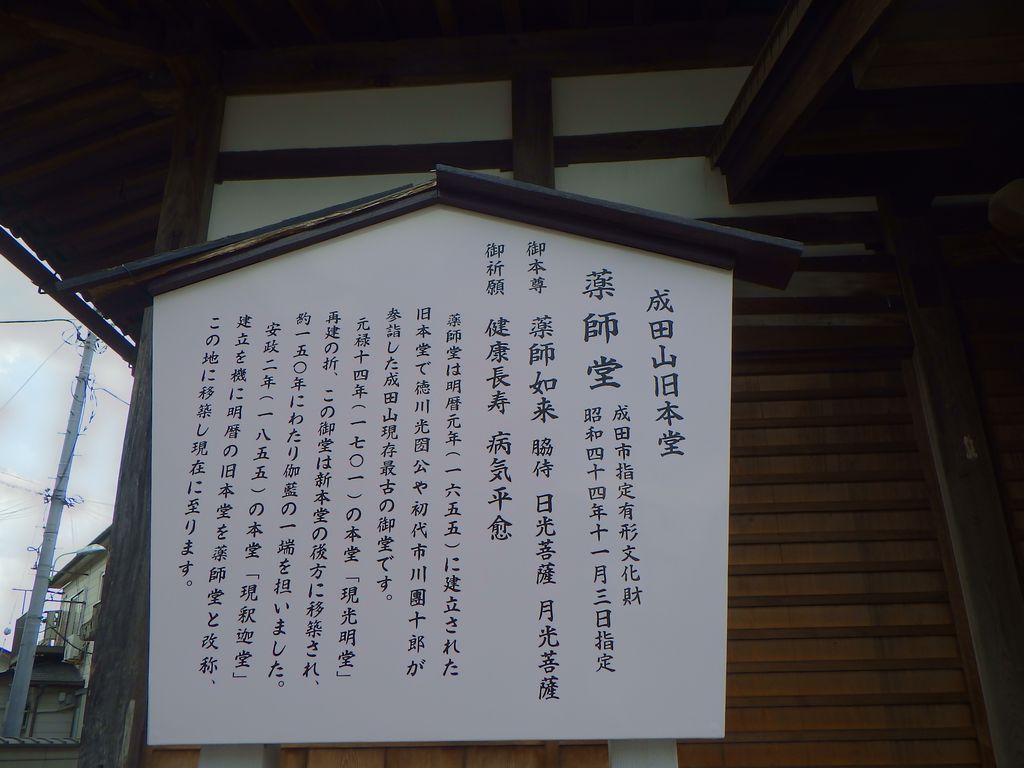 成田山旧本堂
薬師堂 成田市指定有形文化財
昭和四十四年十一月三日指定
御本尊 薬師如来 脇侍 日光菩薩 月光菩薩
御祈願 健康長寿 病気平愈
薬師堂は明暦元年(一六五五)に建立された
旧本堂で徳川光圀公や初代市川團十郎が
参詣した成田山現存最古の御堂です。
元禄十四年(一七〇一)の本堂「現光明堂」
再建の折、この御堂は新本堂の後方に移築され、
約一五〇年にわたり伽藍の一端を担いました。
安政二年(一八五五)の本堂「現釈迦堂」
建立を機に明暦の旧本堂を薬師堂と改称、
この地に移築し現在に至ります。